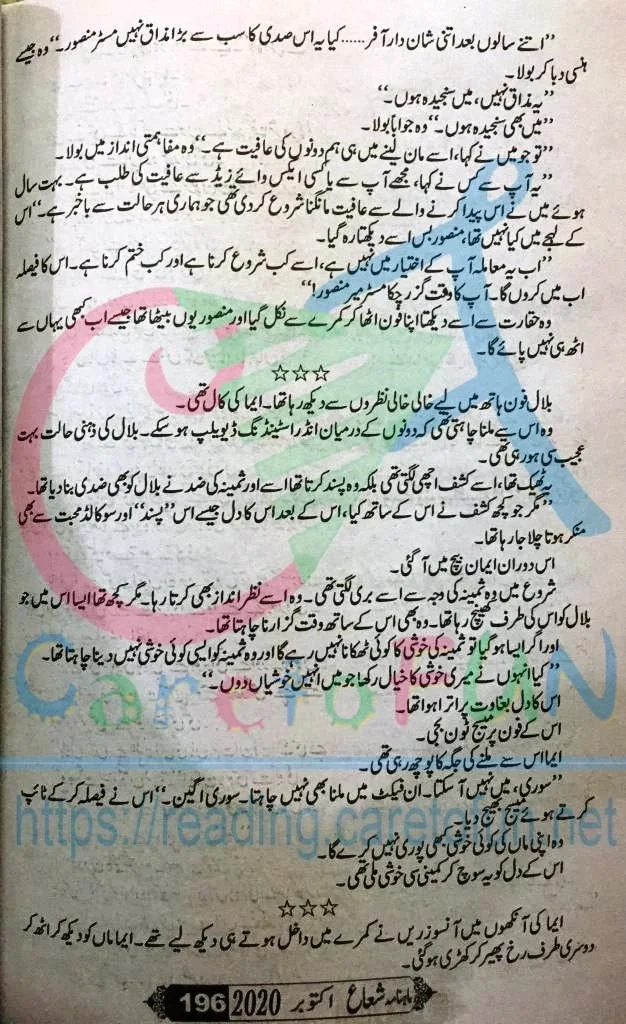 ’’اتنے سالوں بعد اتنی شان دار آفر......کیا یہ اس صدی کا سب سے بڑا مذاق نہیں مسٹر منصور۔‘‘ وہ جیسے
ہنسی دبا کر بولا۔
’’یہ مذاق نہیں، میں سنجیدہ ہوں۔‘‘
’’میں بھی سنجیدہ ہوں۔‘‘ وہ جواباً بولا۔
’’تو جو میں نے کہا، اسے مان لینے میں ہی ہم دونوں کی عافیت ہے۔‘‘ وہ مفاہمتی انداز میں بولا۔
’’یہ آپ سے کس نے کہا، مجھے آپ سے یا کسی ایکس وائے زیڈ سے عافیت کی طلب ہے۔ بہت سال
ہوئے میں نے اس پیدا کرنے والے سے عافیت مانگنا شروع کر دی تھی جو ہماری ہر حالت سے باخبر ہے۔‘‘ اس
کے لہجے میں کیا نہیں تھا، منصور بس اسے دیکھتا رہ گیا۔
’’اب یہ معاملہ آپ کے اختیار میں نہیں ہے، اسے کب شروع کرنا ہے اور کب ختم کرنا ہے۔ اس کا فیصلہ
اب میں کروں گا۔ آپ کا وقت گزر چکا مسٹر میر منصور!‘‘
وہ حقارت سے اسے دیکھتا اپنا فون اٹھا کر کمرے سے نکل گیا اور منصور یوں بیٹھا تھا جیسے اب کبھی یہاں سے
اٹھ ہی نہیں پائے گا۔
☆☆☆
بلال فون ہاتھ میں لیے خالی خالی نظروں سے دیکھ رہا تھا۔ ایما کی کال تھی۔
وہ اس سے ملنا چاہتی تھی کہ دونوں کے درمیان انڈر اسٹینڈنگ ڈیویلپ ہو سکے۔ بلال کی ذہنی حالت بہت
عجیب سی ہو رہی تھی۔
یہ ٹھیک تھا، اسے کشف اچھی لگتی تھی بلکہ وہ پسند کرتا تھا اسے اور ثمینہ کی ضد نے بلال کو بھی ضدی بنا دیا تھا۔
’’مگر جو کچھ کشف نے اس کے ساتھ کیا، اس کے بعد اس کا دل جیسے اس ’’پسند‘‘ اور سو کالڈ محبت سے بھی
منکر ہوتا چلا جا رہا تھا۔
اس دوران ایمان بیچ میں آ گئی۔
شروع میں وہ ثمینہ کی وجہ سے اسے بری لگتی تھی۔ وہ اسے نظر انداز بھی کرتا رہا۔ مگر کچھ تھا ایسا اس میں جو
بلال کو اس کی طرف کھینچ رہا تھا۔ وہ بھی اس کے ساتھ وقت گزارنا چاہتا تھا۔
اور اگر ایسا ہو گیا تو ثمینہ کی خوشی کا کوئی ٹھکانا نہیں رہے گا اور وہ ثمینہ کو ایسی کوئی خوشی نہیں دینا چاہتا تھا۔
’’کیا انہوں نے میری خوشی کا خیال رکھا! جو میں انہیں خوشیاں دوں۔‘‘
اس کا دل بغاوت پر اترا ہوا تھا۔
اس کے فون پر میسج ٹون بجی۔
ایما اس سے ملنے کی جگہ کا پوچھ رہی تھی۔
’’سوری، میں نہیں آ سکتا۔ ان فیکٹ میں ملنا بھی نہیں چاہتا۔ سوری اگین۔‘‘ اس نے فیصلہ کر کے ٹائپ
کرتے ہوئے میسج بھیج دیا۔
وہ اپنی ماں کی کوئی خوشی کبھی پوری نہیں کرے گا۔
اس کے دل کو یہ سوچ کر کمینی سی خوشی ملی تھی۔
☆☆☆
ایما کی آنکھوں میں آنسو زریں نے کمرے میں داخل ہوتے ہی دیکھ لیے تھے۔ ایما ماں کو دیکھ کر اٹھ کر
دوسری طرف رخ پھیر کر کھڑی ہو گئی۔
ماہنامہ شعاع اکتوبر 2020 196
CarefoFUN
https://reading.carefofun.net